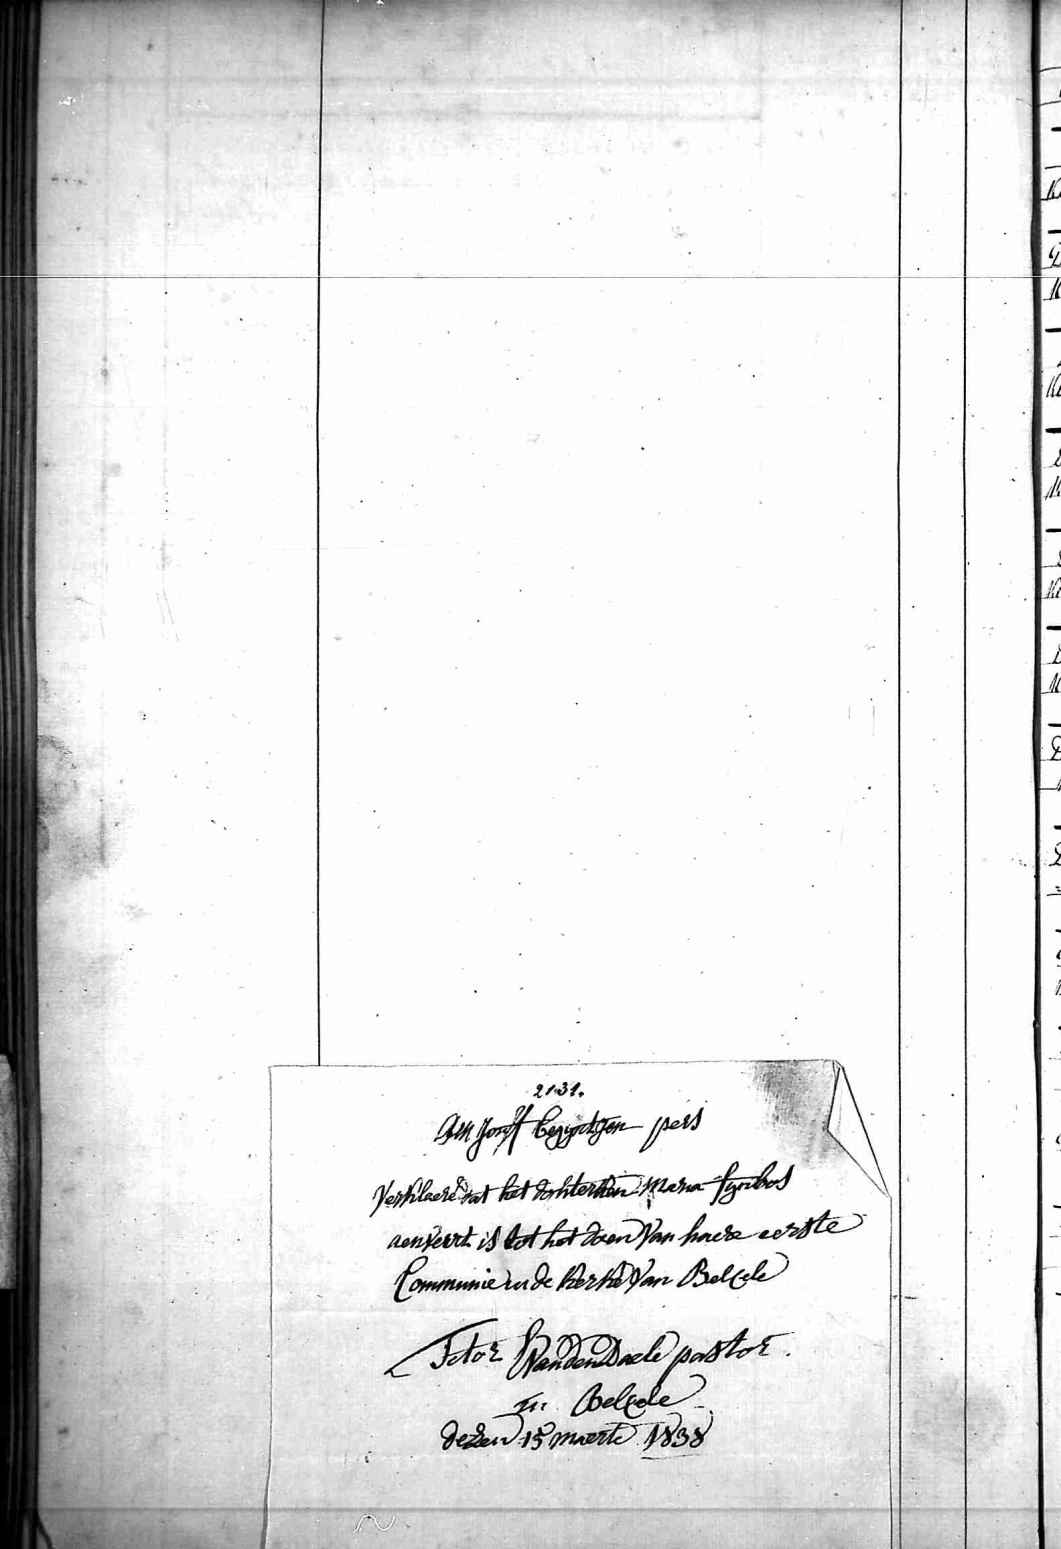 2131.
pers
Verklaere dat het dochterken Maria
aenveert is tot het doen Van haere eerste
Communie in de kerke Van Belcele
VandenDaele pastor.
in Belcele
dezen 15 maerte 1838